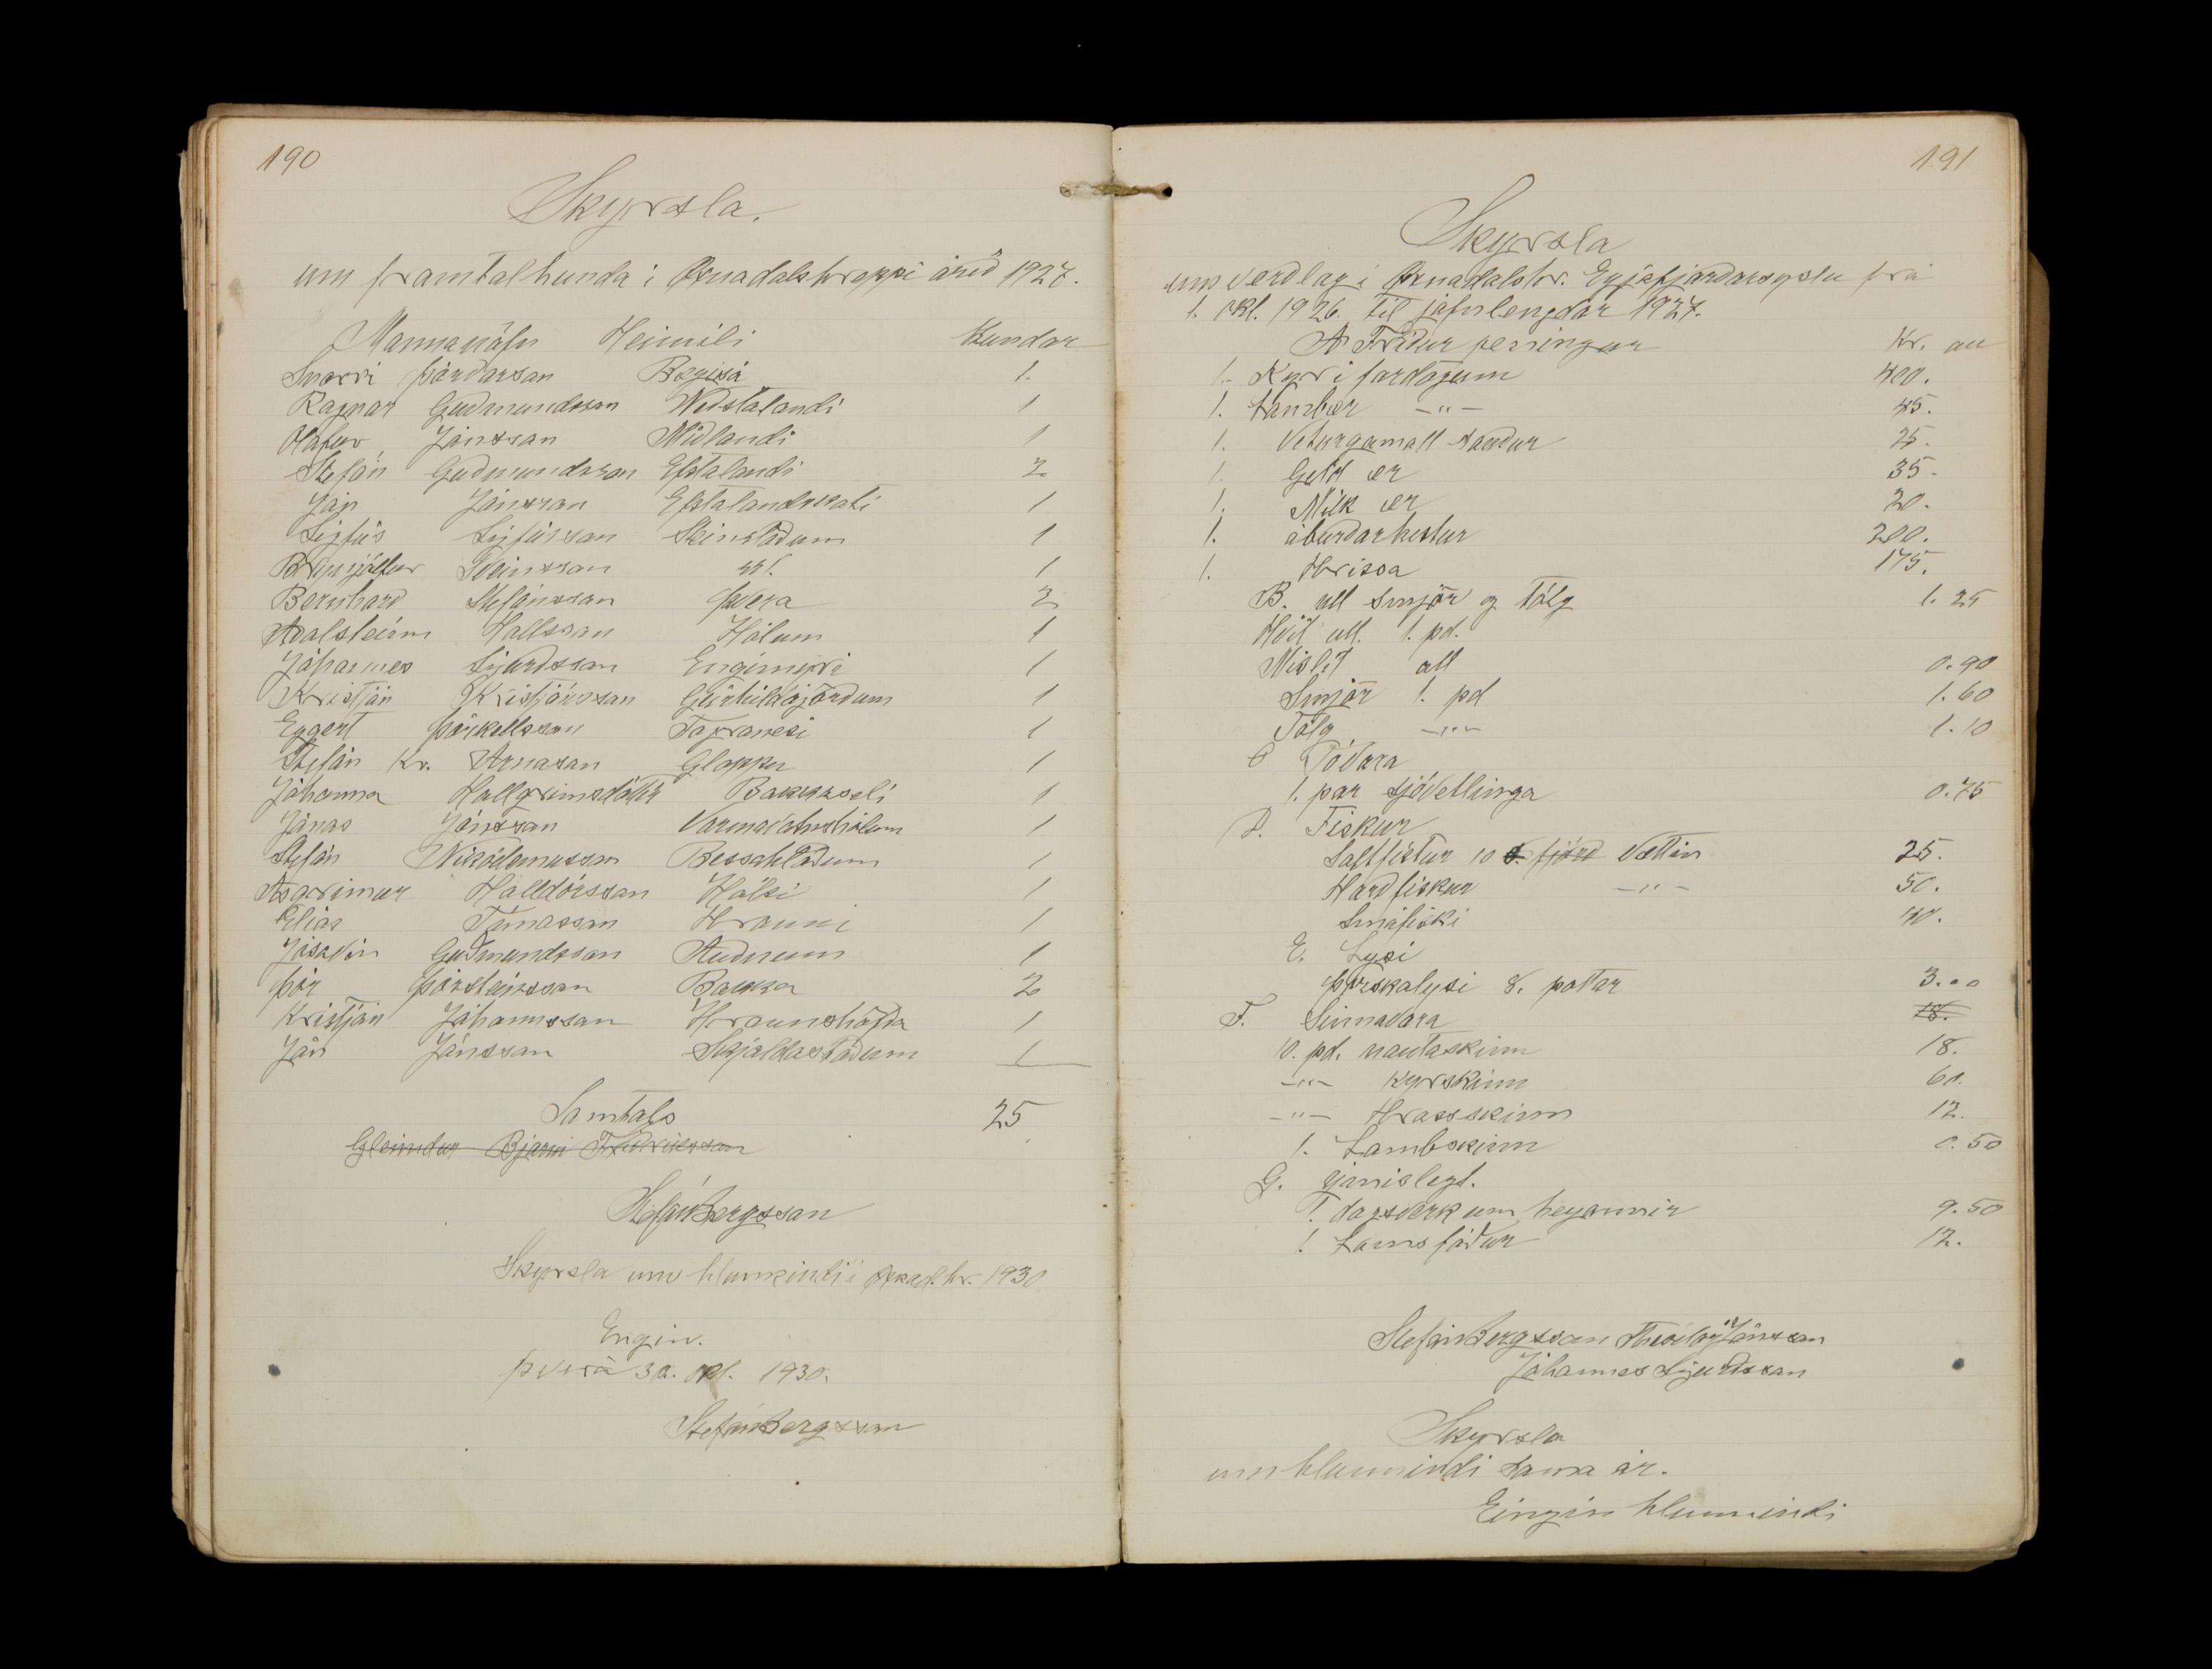 190
Skyrsla.
um framtal hunda i Öxnadalshreppi árið 1927.
Mannanöfn Heimili Hundar
Snorri þórðarsson Bægisá 1.
Ragnar Guðmundsson Neðstalandi 1
Ólafur Jónsson Miðlandi 1
Stefán Guðmundsson Efstalandi 2
Jón Jónsson Efstalandskoti 1
Sigfús Sigfússon Steinstöðum 1
Brynjólfur Sveinsson sst. 1
Bernharð Stefánsson þverá 2
Aðalsteinn Hallsson Hólum 1
Jóhannes Sigurðsson Engimýri 1
Kristján Kristjánsson Geirhildagörðum 1
Eggert þórkellsson Fagranesi 1
Stefán Kr. Árnason Gloppu 1
Jóhanna Hallgrimsdóttir Bakkaseli 1
Jónas Jónsson Varmavatnshólum 1
Stefán Nikódemusson Bessahlöðum 1
Asgrimur Halldórsson Hálsi 1
Elias Tómasson Hrauni 1
Jósavin Guðmundsson Auðnum 1
þór þórsteinsson Bakka 2
Kristján Jóhannsson Hraunshöfða 1
Jón Jónsson Skjaldastöðum 1
Samtals 25
Gleimdur Bjarni Friðriksson
Stefán Bergsson
Skyrsla um hlunnindi i Öxnad.hr. 1930
Engin.
þverá 30. okt. 1930.
Stefán Bergsson
191
Skyrsla
um verðlag i Öxnadalshr. Eyjafjarðarsyslu frá
1. okt. 1926. til jafnlengdar 1927.
A Friður peningur Kr. au
1. Kyr i fardögum 400.
1. Lambær —"— 45.
1. Veturgamall sauður 25.
1. Geld ær 35.
1. Milk ær 20.
1. áburðarhestur 200.
1. Hrissa 175.
B. ull smjör og tólg 1.25
Hvit ull. 1. pd.
Mislit ull 0.90
Smjör 1. pd 1.60
Tólg —"— 1.10
C Tóvara
1. par sjóvetlinga 0.75
D. Fiskur
Saltfiskur 10 fjórð vættin 25.
Harðfiskur —"— 50.
Smáfiski 40.
E. Lysi
þorskalysi 8. pottar 3.00
F. Skinnavara 18.
10. pd. nautaskinn 18.
—"— kyrskinn 60.
—"— Hrossskinn 12.
1. Lambskinn 0.50
G. ýmislegt.
1. dagsverk um heyannir 9.50
1 Lamsfóður 12.
Stefán Bergsson Theodór Jónsson
Jóhannes Sigurðsson
Skyrsla
um hlunnindi sama ár.
Eingin hlunnindi